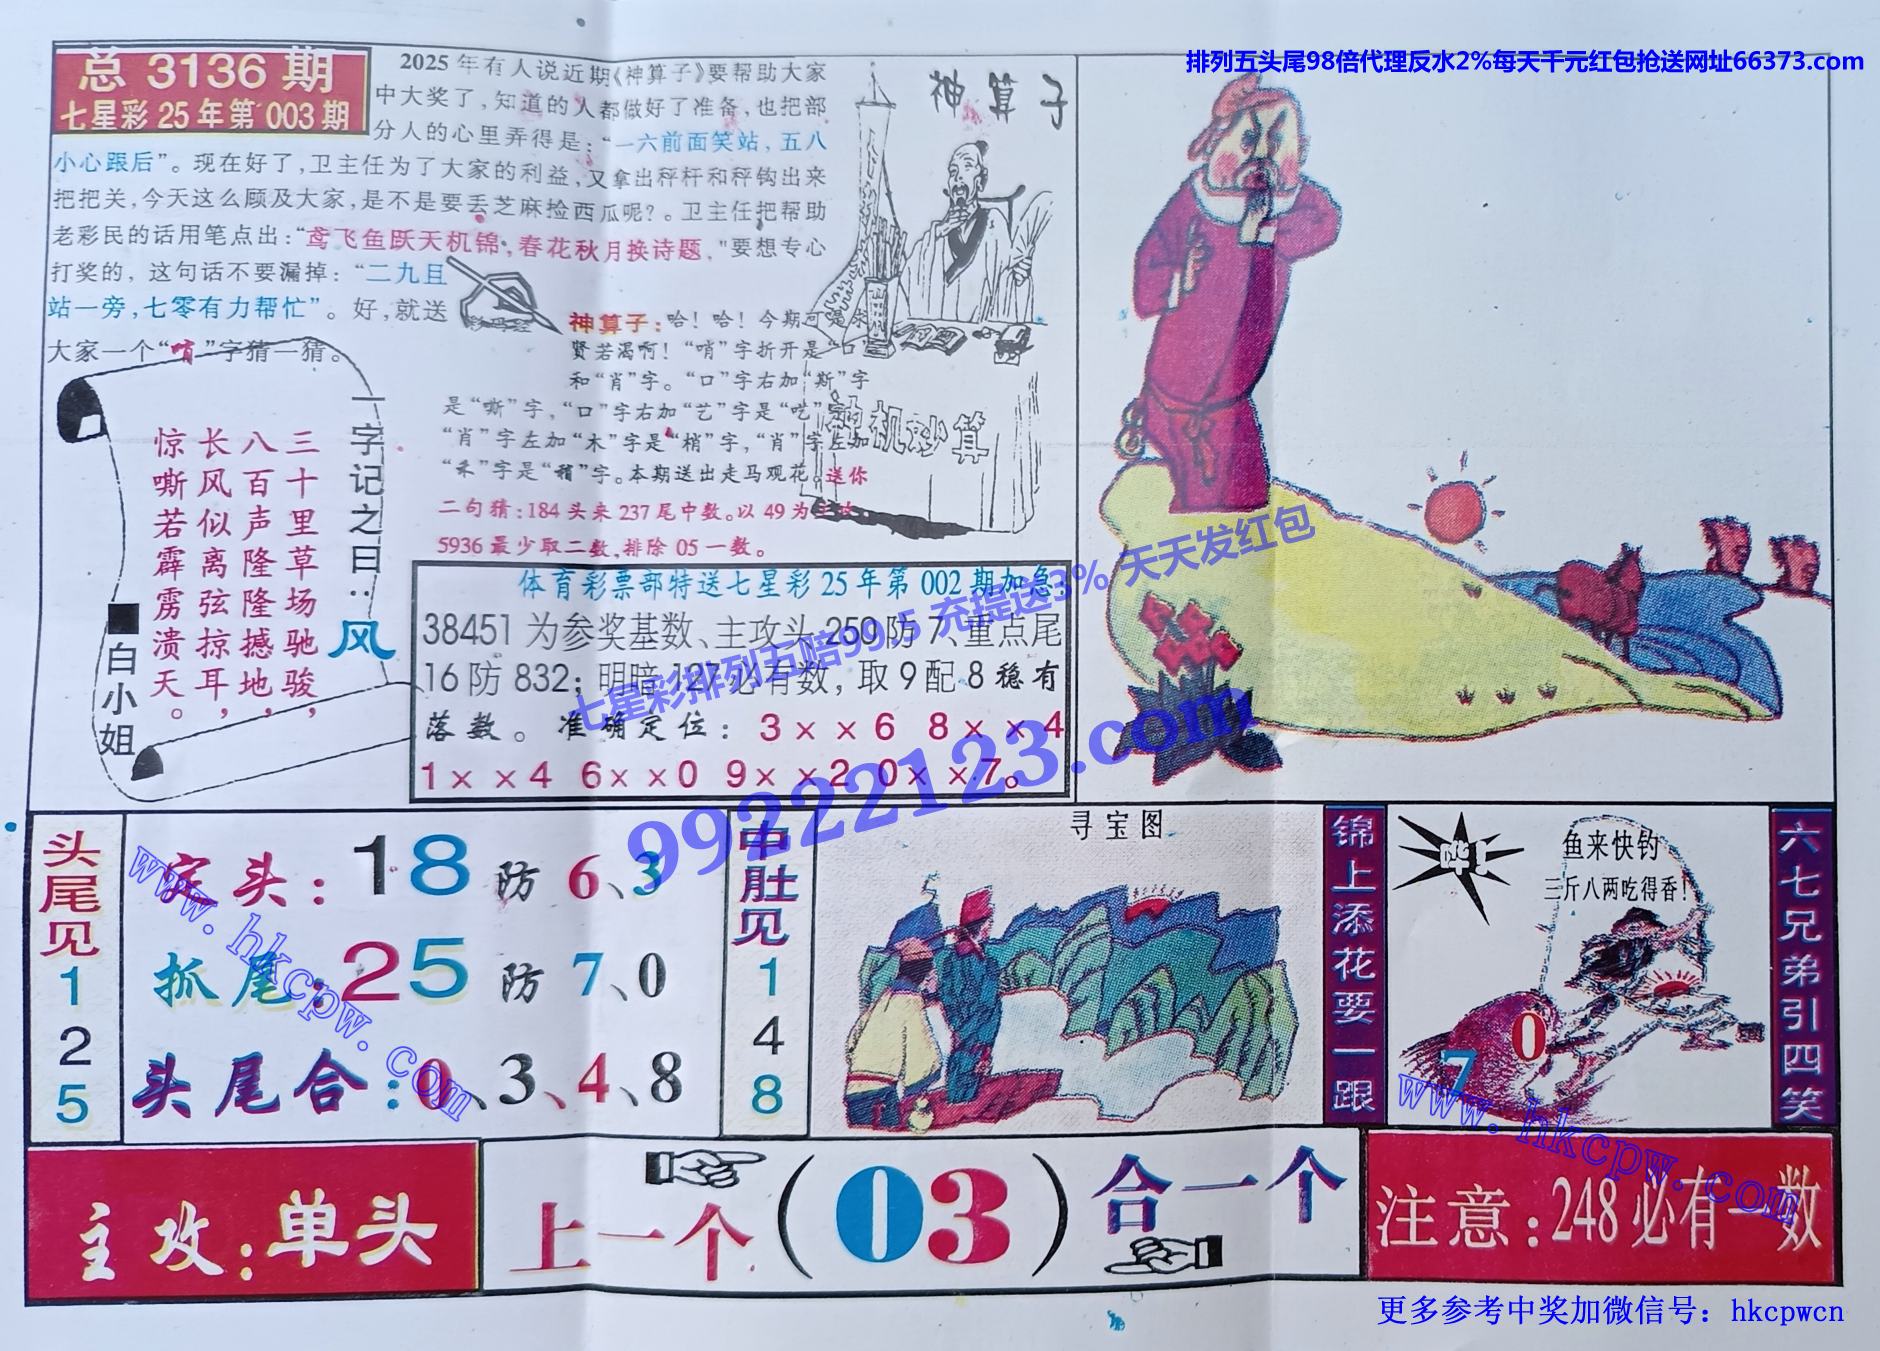 排列五头尾98倍代理反水2%每天千元红包抢送网址66373.com
总 3136 期
七星彩 25 年第 003 期
2025 年有人说近期《神算子》要帮助大家
中大奖了，知道的人都做好了准备，也把部
分人的心里弄得是：“一六前面笑站，五八
小心跟后”。现在好了，卫主任为了大家的利益，又拿出秤杆和秤钩出来
把把关，今天这么顾及大家，是不是要丢芝麻捡西瓜呢？。卫主任把帮助
老彩民的话用笔点出：“鸢飞鱼跃天机锦，春花秋月换诗题，"要想专心
打奖的，这句话不要漏掉：“二九且
站一旁，七零有力帮忙”。好，就送
大家一个“哨”字猜一猜。
神算子
神机妙算
神算子：哈！哈！今期可是求
贤若渴啊！“哨”字折开是“口”
和“肖”字。“口”字右加“斯”字
是“嘶”字，“口”字右加“艺”字是“呓”字
“肖”字左加“木”字是“梢”字，“肖”字左加
“禾”字是“稍”字。本期送出走马观花。送你
二句猜：184 头来 237 尾中数。以 49 为主攻，
5936 最少取二数，排除 05 一数。
一字记之曰：风
三十里草场驰骏，
八百声隆隆撼地，
长风似离弦掠耳，
惊嘶若霹雳溃天。
■白小姐
体育彩票部特送七星彩 25 年第 002 期加急：
38451 为参奖基数、主攻头 250 防 7、重点尾
16 防 832；明暗 127 必有数，取 9 配 8 稳有
落数。准确定位：3××6 8××4
1××4 6××0 9××2 0××7。
七星彩排列五赔99.5 充提送3% 天天发红包
99222123.com
头尾见
1
2
5
定头：18 防 6、3
抓尾：25 防 7、0
头尾合：0、3、4、8
www.hkcpw.com
中肚见
1
4
8
寻宝图
锦上添花要一跟
鱼来快钓
三斤八两吃得香！
0
7
www.hkcpw.com
六七兄弟引四笑
主攻：单头
上一个（03）合一个
注意：248 必有一数
更多参考中奖加微信号：hkcpwcn